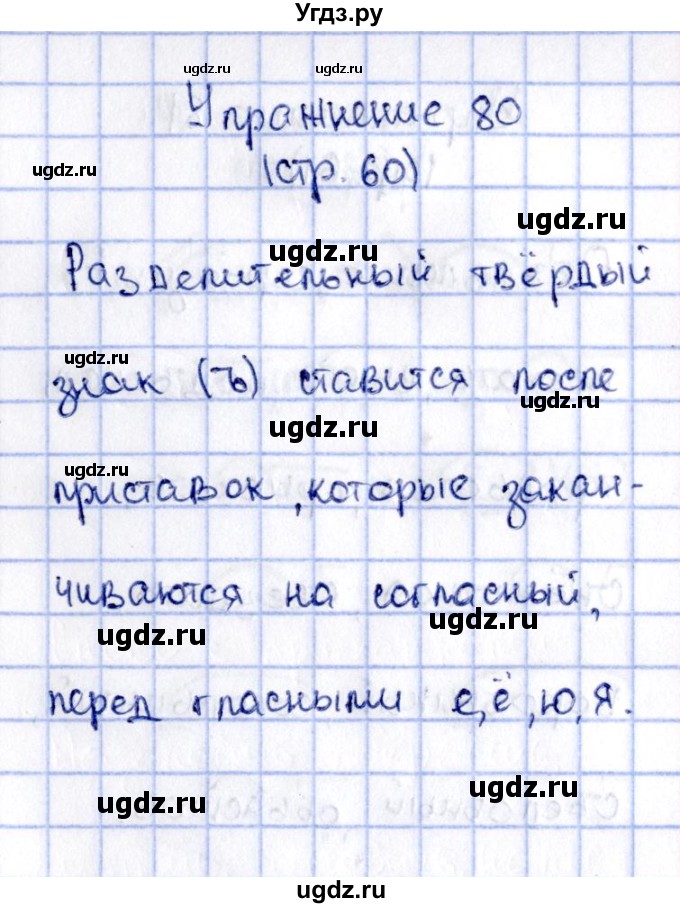 Угдз.ру
ugdz.ru ugdz.ru
Упражнение 80
ugdz.ru
(стр. 60)
ugdz.ru
ugdz.ru
Разделительный твёрдый
ugdz.ru
знак (ъ) ставится после
ugdz.ru
ugdz.ru
ugdz.ru
приставок, которые закан-
чиваются на согласный,
ugdz.ru
ugdz.ru
перед гласными е, ё, ю, я.
ugdz.ru
ugdz.ru
ugdz.ru